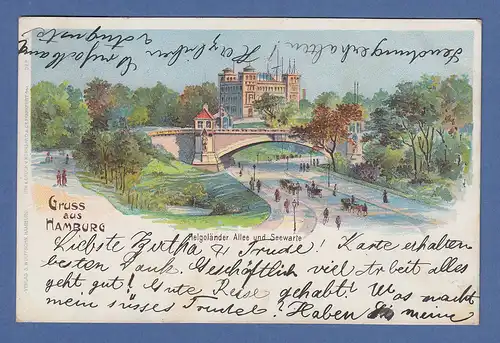 Gruss
aus
HAMBURG
Helgoländer Allee und Seewarte
Liebste Bertha & Trude! Karte erhalten
besten Dank. Geschäftlich viel Arbeit alles
geht gut! Gute Reise gehabt! Was macht
mein süsses Trudel? Haben Sie meine
Sendung erhalten! Herzlichen